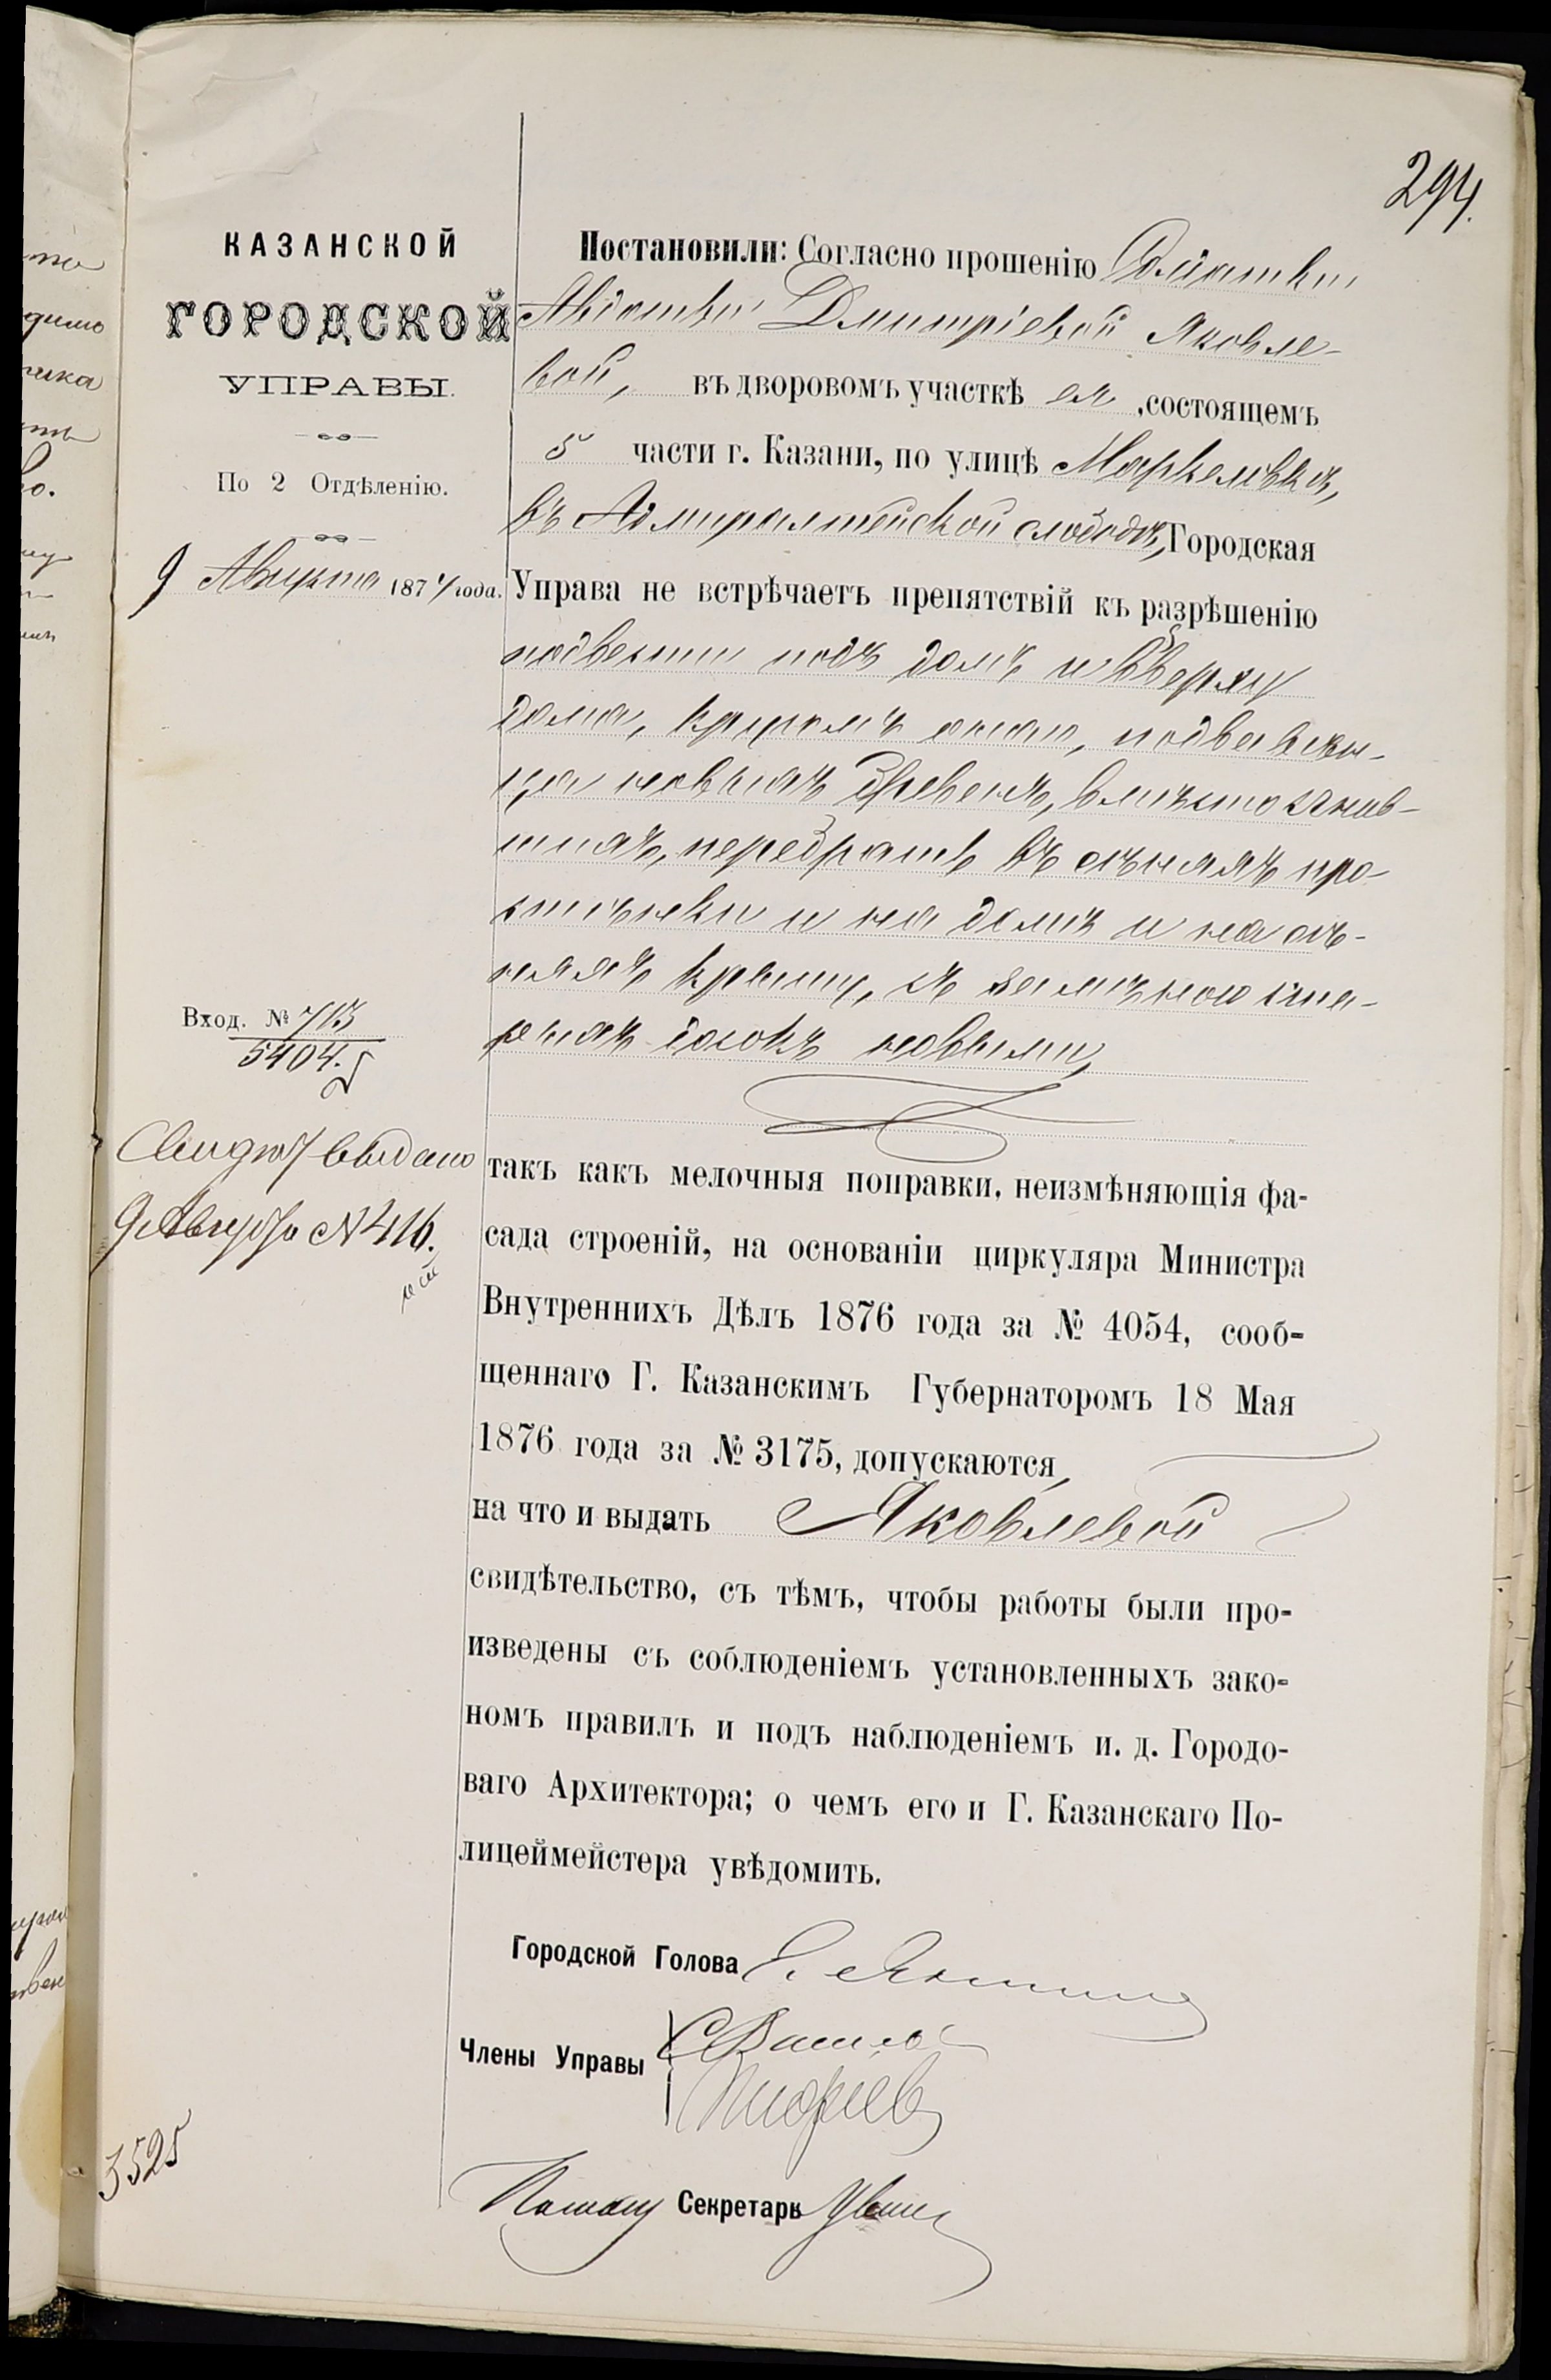 294.
КАЗАНСКОЙ
ГОРОДСКОЙ
УПРАВЫ.
По 2 Отдѣленію.
9 Августа 187 года.
Вход. № 713
5404.
Свидѣт выдано
9 Августа № 416.
3525
Постановили: Согласно прошенію Солдатки
Авдотьи Дмитріевой Яковле-
вой, въ дворовомъ участкѣ ея, состоящемъ
5 части г. Казани, по улицѣ Маркеловкѣ,
въ Адмиралтейской слободѣ, Городская
Управа не встрѣчаетъ препятствій къ разрѣшенію
подвести подъ домъ и вверху
дома, кругомъ около, новыхъ бревенъ, вмѣсто сгнив-
шихъ, перебрать въ сѣняхъ про-
стѣнки и на домѣ и на сѣ-
няхъ крышу, съ замѣною ста-
рыхъ досокъ новыми,
такъ какъ мелочныя поправки, неизмѣняющія фа-
сада строеній, на основаніи циркуляра Министра
Внутреннихъ Дѣлъ 1876 года за № 4054, сооб-
щеннаго Г. Казанскимъ Губернаторомъ 18 Мая
1876 года за № 3175, допускаются,
на что и выдать Яковлевой
свидѣтельство, съ тѣмъ, чтобы работы были про-
изведены съ соблюденіемъ установленныхъ зако-
номъ правилъ и подъ наблюденіемъ и. д. Городо-
ваго Архитектора; о чемъ его и Г. Казанскаго По-
лицеймейстера увѣдомить.
Городской Голова
Члены Управы
Секретарь